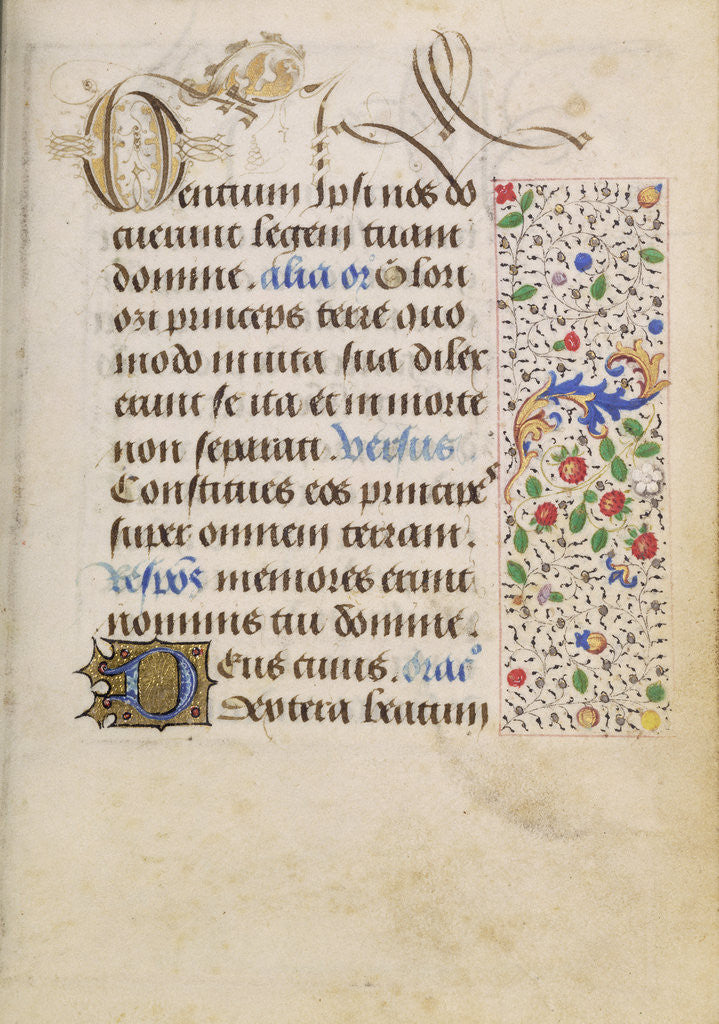 Gentium ipsi nos do
cuerunt legem tuam
domine. alia or° Glori
osi principes terre quo
modo in vita sua dilex
erunt se ita et in morte
non separati. Versus
Constitues eos principes
super omnem terram.
Respōs memores erunt
nominis tui domine.
Deus cuius. orac°
dextera beatum